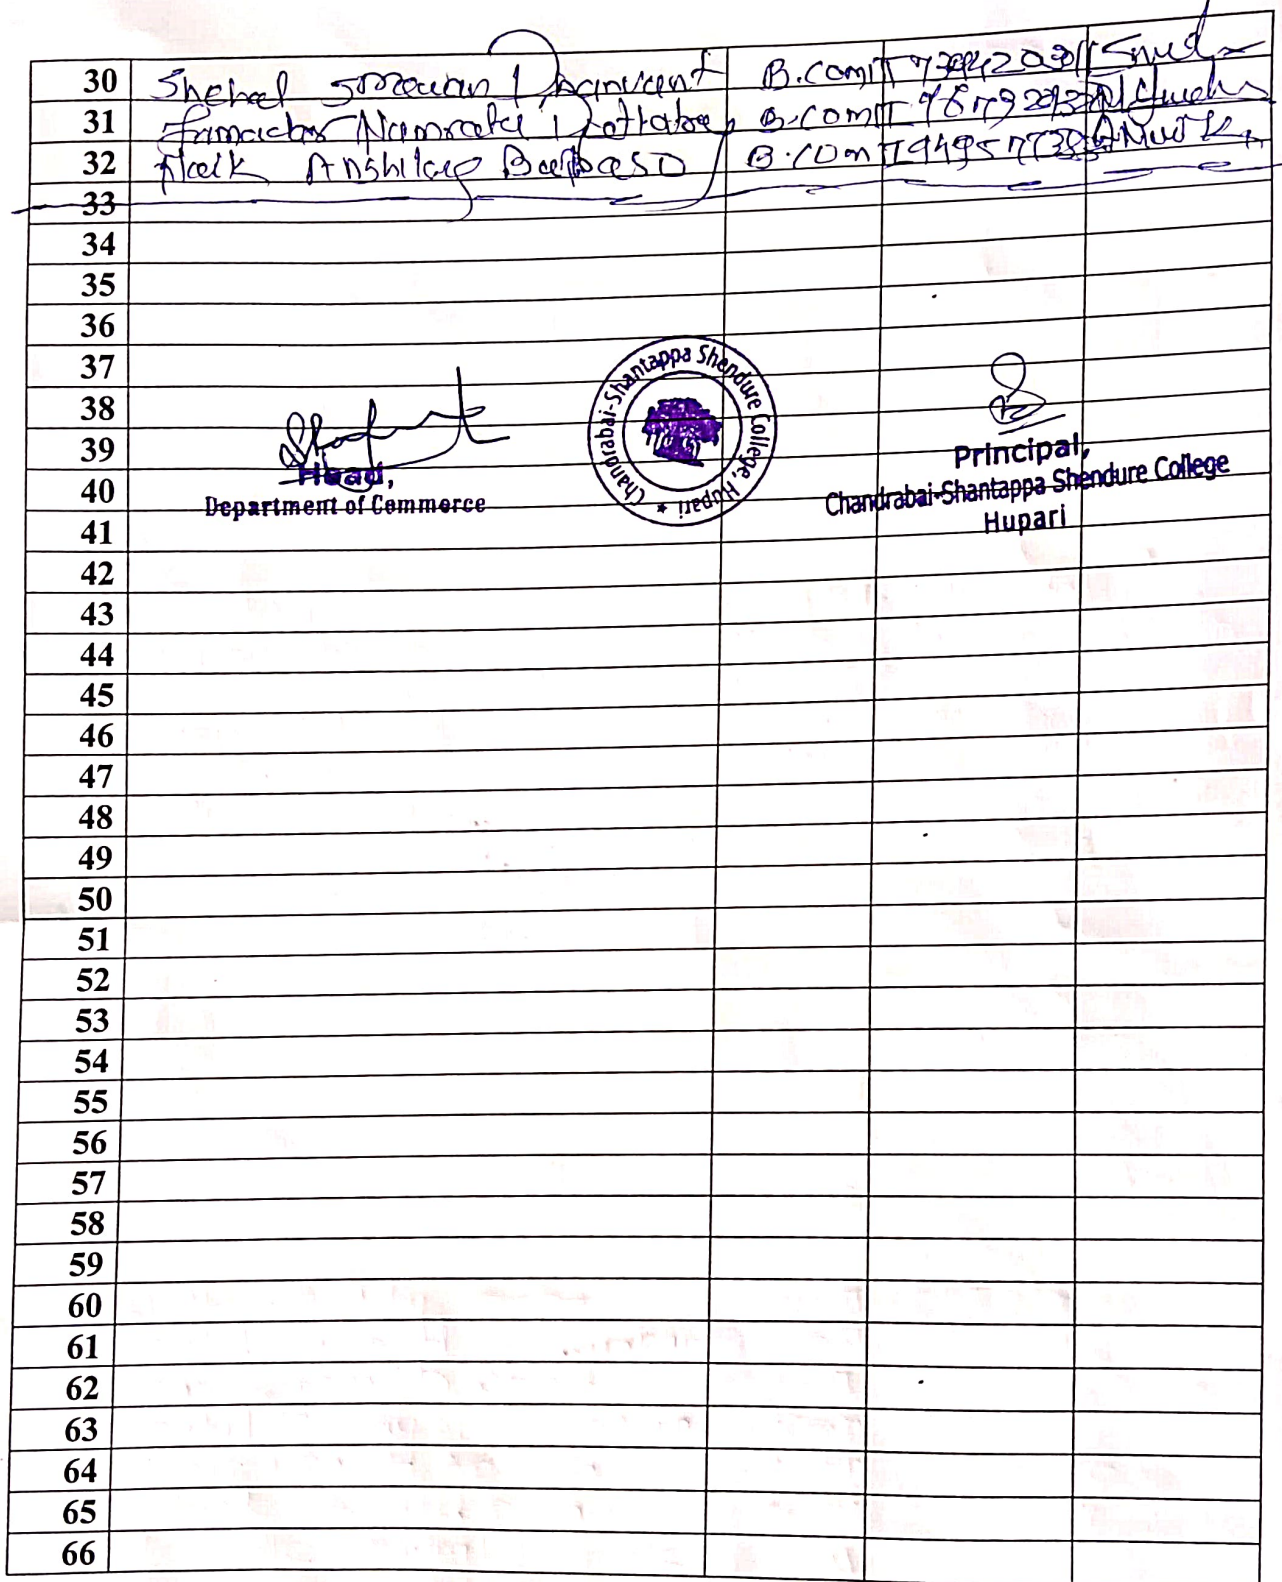 30 Snehal Dhanvant B.com II
31 Jamadar Namrata Dattatray B.com II
32 Naik B.com II
33
34
35
36
37
38
39
40
41
42
43
44
45
46
47
48
49
50
51
52
53
54
55
56
57
58
59
60
61
62
63
64
65
66
Head,
Department of Commerce
Chandrabai-Shantappa Shendure College, Hupari ★
Principal,
Chandrabai-Shantappa Shendure College
Hupari